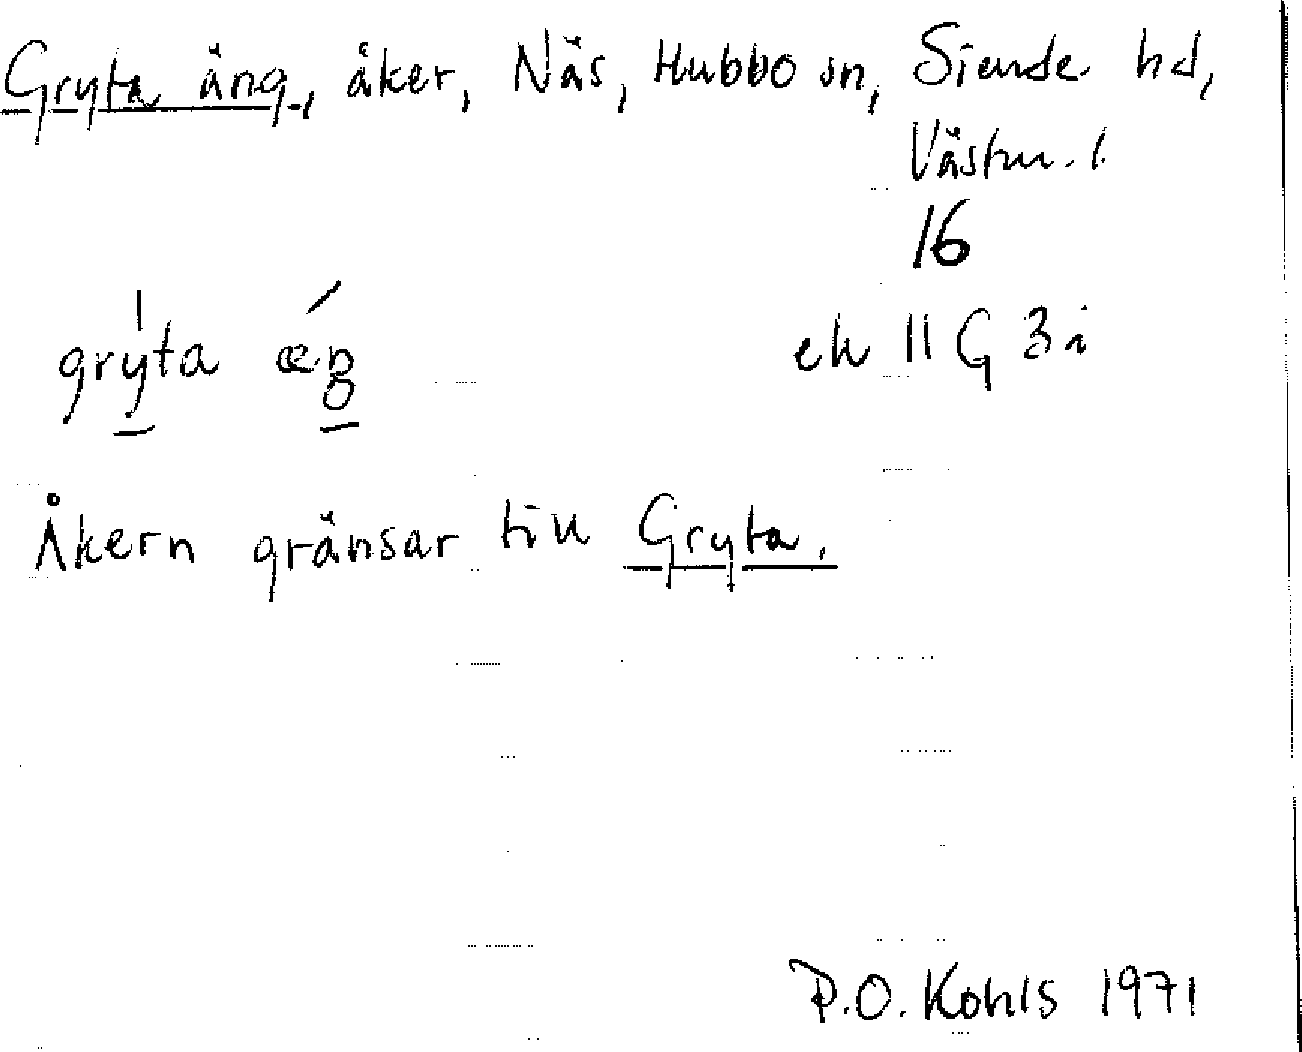 Gryta äng, åker, Näs, Hubbo sn, Siende hd,
Västm. l.
16
grýta ǽŋ
ek 11 G 3 i
Åkern gränsar till Gryta.
P.O. Kohls 1971